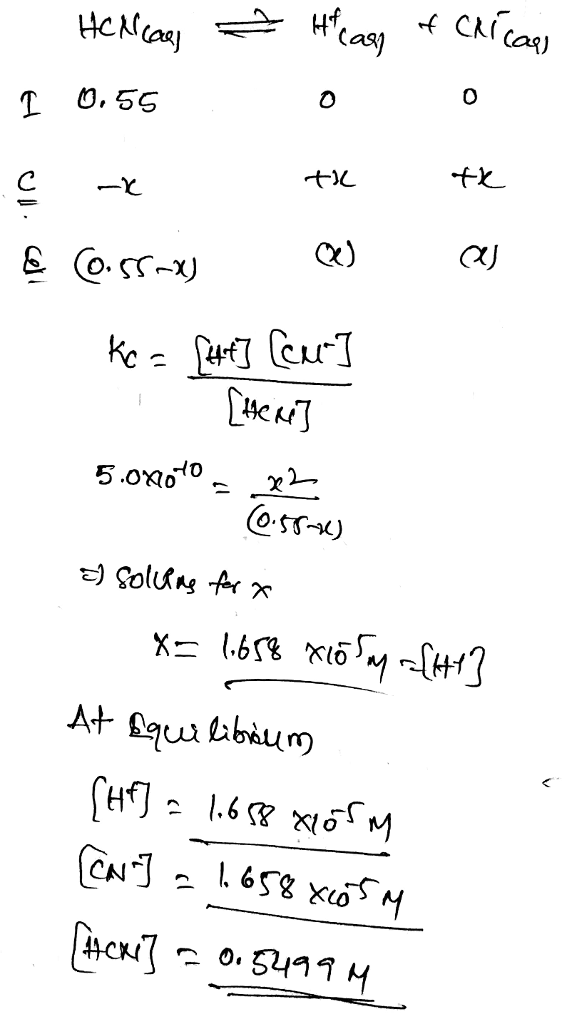 HCN(aq) ⇌ H⁺(aq) + CN⁻(aq)
I 0.55 0 0
C -x +x +x
E (0.55-x) (x) (x)
Kc = [H+] [CN-] / [HCN]
5.0x10⁻¹⁰ = x2 / (0.55-x)
⇒ Solving for x
X = 1.658 x10⁻⁵ M = [H+]
At Equilibrium
[H⁺] = 1.658 x10⁻⁵ M
[CN-] = 1.658 x10⁻⁵ M
[HCN] = 0.5499 M